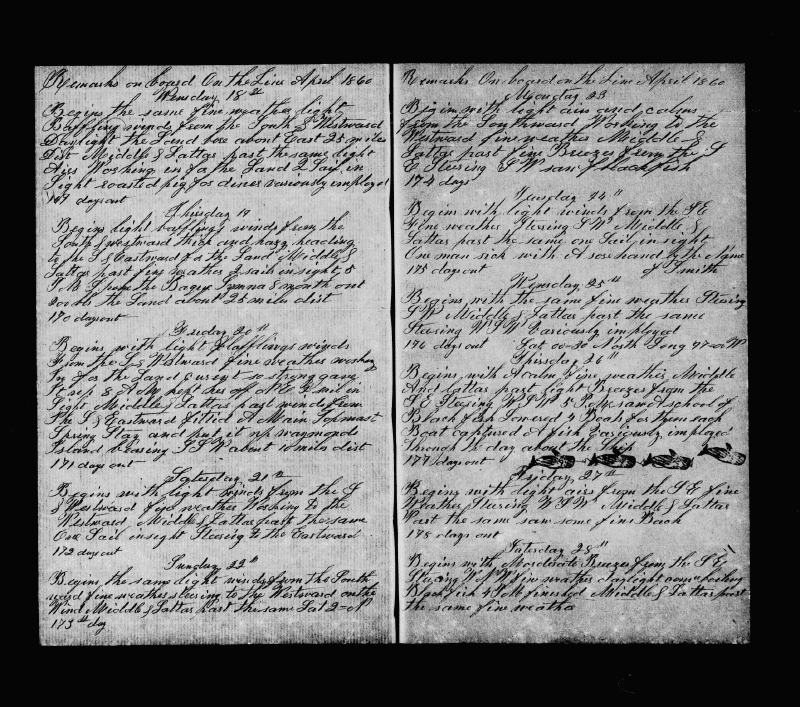 Remarks on board On the Line April 1860
Wensday 18th
Begins the same fine weather light
Baffling winds from the South & Westward
Daylight the Land bore about East 25 miles
Dist Middle & Lattar part the same light
Airs Working in for the Land 2 Sail in
Sight roasted pig for diner variously employd
169 days out
Thirsday 19
Begins light baffling winds from the
South & westward thick and hazy heading
to the S & Eastward for the Land Middle &
Lattar part fine weather 2 sail in sight 5
P M the Barque 8 month out
200 bbls the Land about 25 miles dist
170 days out
Friday 20th
Begins with light Bafflings winds
From the S & Westward fine weather working
in for the Land Current so strong gave
it up
Sight Middle & Lattar part winds from
The S & Eastward fitted A Main Topmast
Spring Stay and put it up
Island bearing S S W about 10 miles dist
171 days out
Satesday 21st
Begins with light winds from the S
& Westward fine weather Working to the
Westward Middle & Lattar part the same
One Sail in sight Steering to the Eastward
172 days out
Sunday 22nd
Begins the same light winds from the South
ward fine weather steering to the Westward on the
Wind Middle & Lattar part the same Lat 2=00 N
173th day
Remarks On board on the Line April 1860
Monday 23
Begin with light airs and calms
from the Southward Working to the
Westward fine weather Middle &
Lattar part fine Breezes from the S
E Steering S W saw blackfish
174 days
Tuesday 24th
Begins with light winds from the S E
Fine weather Steering S W Middle &
Lattar past the same one Sail in sight
One man sick with A sore hand by the Name
175 days out of Smith
Wensday 25th
Begins with the same fine weather Steering
S W Middle & Lattar part the same
Steering W S W Variously employed
176 days out Lat 00=30 North Long 97=00 W
Thirsday 26th
Begins with A calm Fine weather Middle
And Lattar past light Breezes from the
S E Steering W S W 5 P M saw A school of
Black fish Lowered 4 Boats for them each
Boat captured A fish Variously employed
through the day about the Ship
177 days out
Friday 27th
Begins with light airs from the S E fine
Weather Steering W S W Middle & Lattar
Part the same saw some fin Back
178 days out
Satesday 28th
Begins with Moderate Breezes from the S E
Stearing W N W fine weather daylight com boiling
Black fish 4 P M finished Middle & Lattar part
the same fine weather